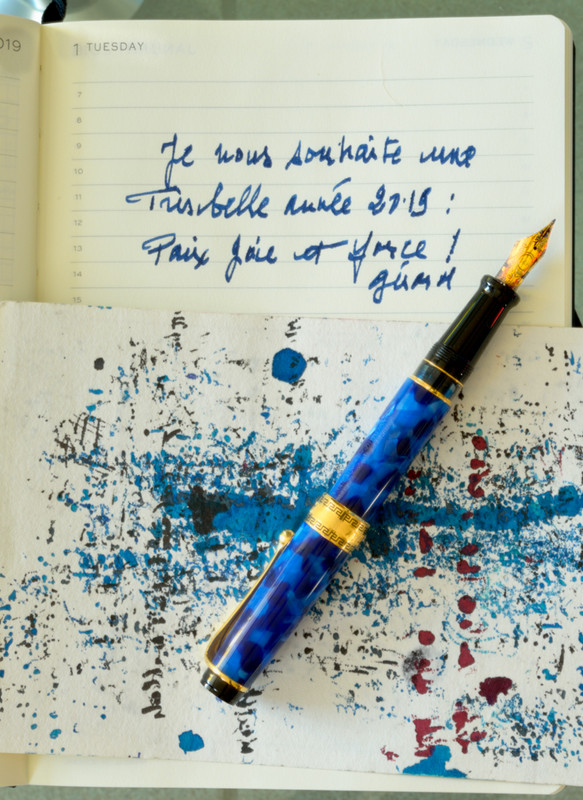 019
1 TUESDAY
7
8
9
Je nous souhaite une
10
11
Très belle année 2019 :
12
13
Paix Joie et force !
14
Gérard
15